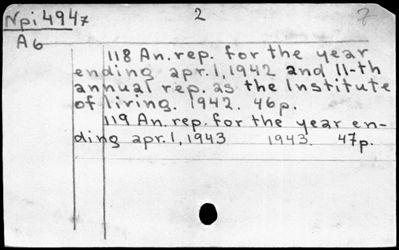 Npi494z 2
A6
118 An. rep. for the year
ending apr. 1, 1942 and 11-th
annual rep. as the Institute
of living. 1942. 46p.
119 An. rep. for the year en-
ding apr. 1, 1943 1943. 47p.